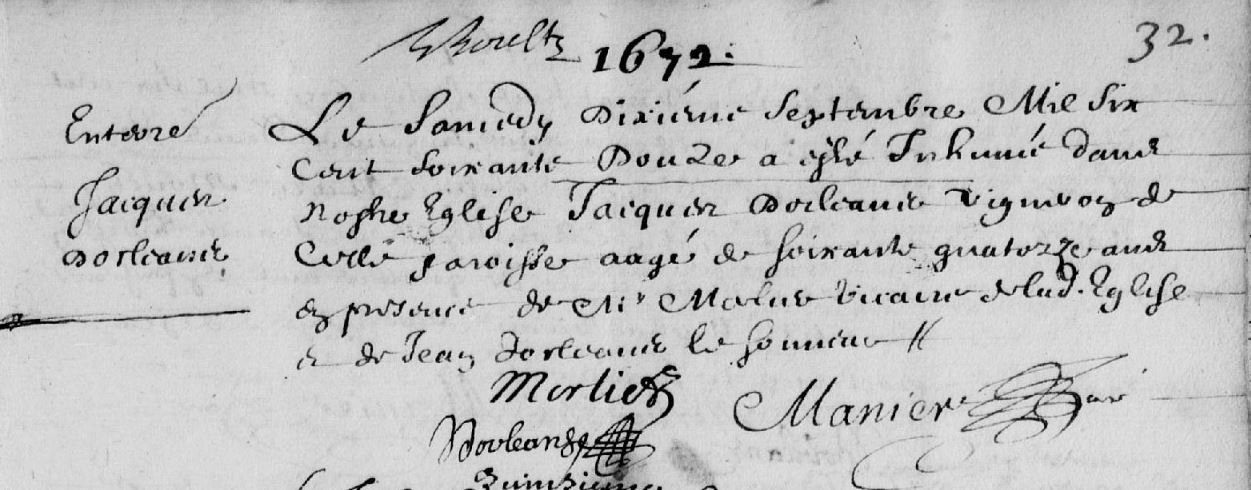 1672.
32.
Enterré
Jacques
dorleans
Le Samedy Dixiéme Septembre Mil Six
Cent soixante Douze a esté Inhumé dans
nostre Eglise Jacques Dorleans vigneron de
Cette paroisse aagé de soixante quatorze ans
en presence de Mr vicaire de lad. Eglise
et de Jean dorleans le sonneur
Manier
Dorleans